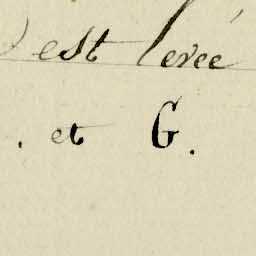 est levée
. et G.